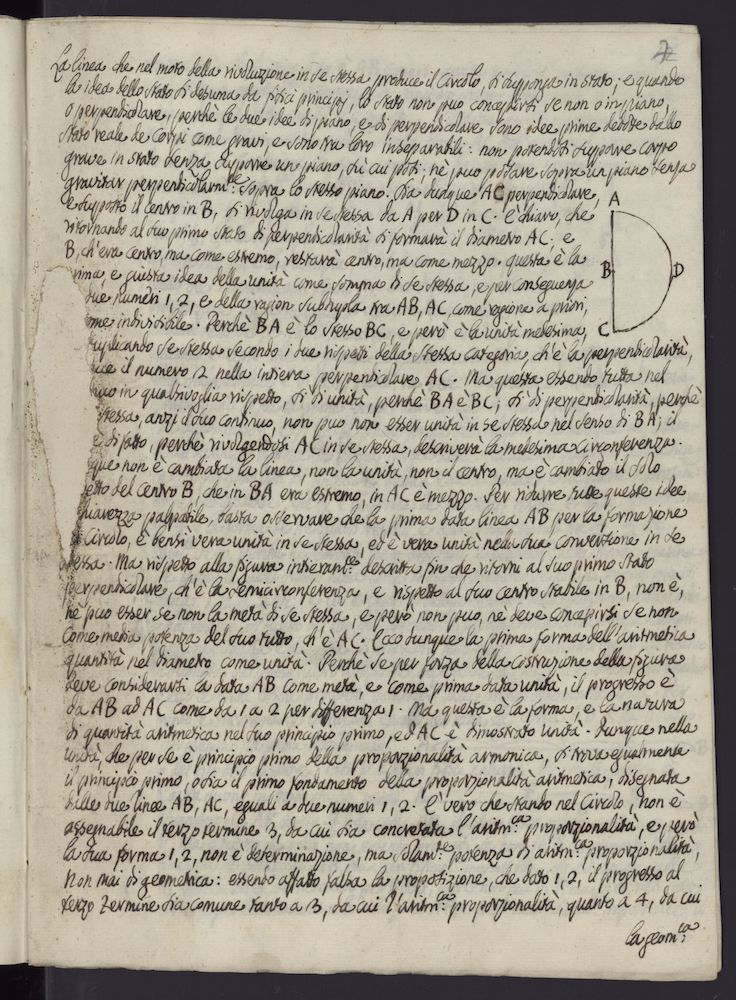 2
La linea che nel moto della rivoluzione in se stessa produce il Circolo, si supponga in stato; e quando
la idea dello stato si desuma da fisici principj, lo stato non può concepirsi se non o in piano,
o perpendicolare, perchè le due idee di piano, e di perpendicolare sono idee prime dedotte dallo
stato reale de Corpi come gravi, e sono tra loro inseparabili: non potendosi supporre corpo
grave in stato senza supporre un piano, su cui posi; nè può posare sopra un piano senza
gravitar perpendicolarm.te sopra lo stesso piano. Sia dunque AC perpendicolare,
e supposto il centro in B, si rivolga in se stessa da A per D in C. È chiaro, che
ritornando al suo primo stato di perpendicolarità si formarà il diametro AC, e
B, ch'era centro, ma come estremo, restarà centro, ma come mezzo. questa è la
rima, e giusta idea della unità come somma di se stessa, e per conseguenza
due numeri 1, 2, e della ragion subdupla tra AB, AC, come ragione a priori,
me indivisibile. Perchè BA è lo stesso BC, e però è la unità medesima,
uplicando se stessa secondo i due rispetti della stessa categoria, ch'è la perpendicolarità,
uce il numero 2 nella intiera perpendicolare AC. Ma questa essendo tutta nel
nuo in qualsivoglia rispetto, sì di unità, perchè BA è BC; sì di perpendicolarità, perchè
stessa, anzi il suo continuo, non può non esser unità in se stessa nel senso di BA; il
è di fatto, perchè rivolgendosi AC in se stessa, descriverà la medesima circonferenza.
que non è cambiata la linea, non la unità, non il centro, ma è cambiato il solo
etto del centro B, che in BA era estremo, in AC è mezzo. Per ridurre tutte queste idee
hiarezza palpabile, basta osservare che la prima data linea AB per la formazione
Circolo, è bensì vera unità in se stessa, ed è vera unità nella sua conversione in se
essa. Ma rispetto alla figura intieram.te descritta fin che ritorni al suo primo stato
perpendicolare, ch'è la semicirconferenza, e rispetto al suo centro stabile in B, non è,
nè può esser se non la metà di se stessa, e però non può, nè deve concepirsi se non
come media potenza del suo tutto, ch'è AC. Ecco dunque la prima forma dell'aritmetica
quantità nel diametro come unità. Perchè se per forza della costruzione della figura
deve considerarsi la data AB come metà, e come prima data unità, il progresso è
da AB ad AC come da 1 a 2 per differenza 1. Ma questa è la forma, e la natura
di quantità aritmetica nel suo principio primo, ed AC è dimostrato unità. Dunque nella
unità, che per se è principio primo della proporzionalità armonica, si trova egualmente
il principio primo, o sia il primo fondamento della proporzionalità aritmetica, disegnata
dalle due linee AB, AC, eguali a due numeri 1, 2. È vero che stando nel Circolo, non è
assegnabile il terzo termine 3, da cui sia concretata l'aritm.ca proporzionalità, e però
la sua forma 1, 2, non è determinazione, ma solam.te potenza di aritm.ca proporzionalità,
non mai di geometrica: essendo affatto falsa la proposizione, che dato 1, 2, il progresso al
terzo termine sia comune tanto a 3, da cui l'aritm.ca proporzionalità, quanto a 4, da cui
la geom.ca
A
B
D
C